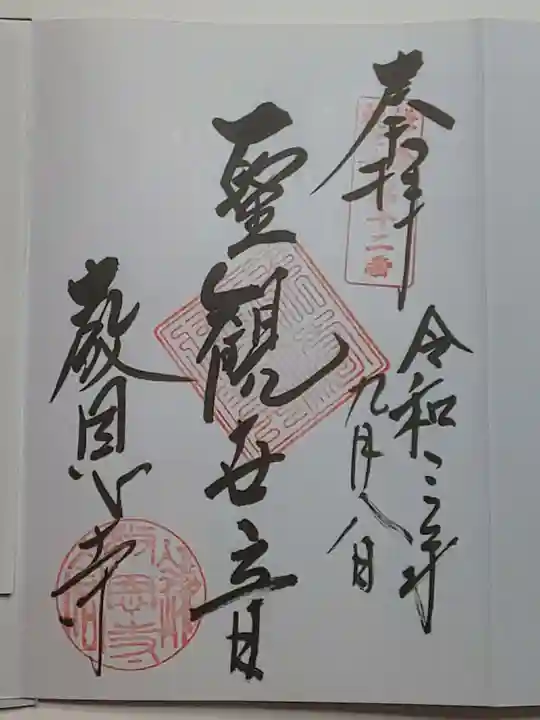 奉拝
十二番
令和三年
九月八日
聖観世音
教恩寺